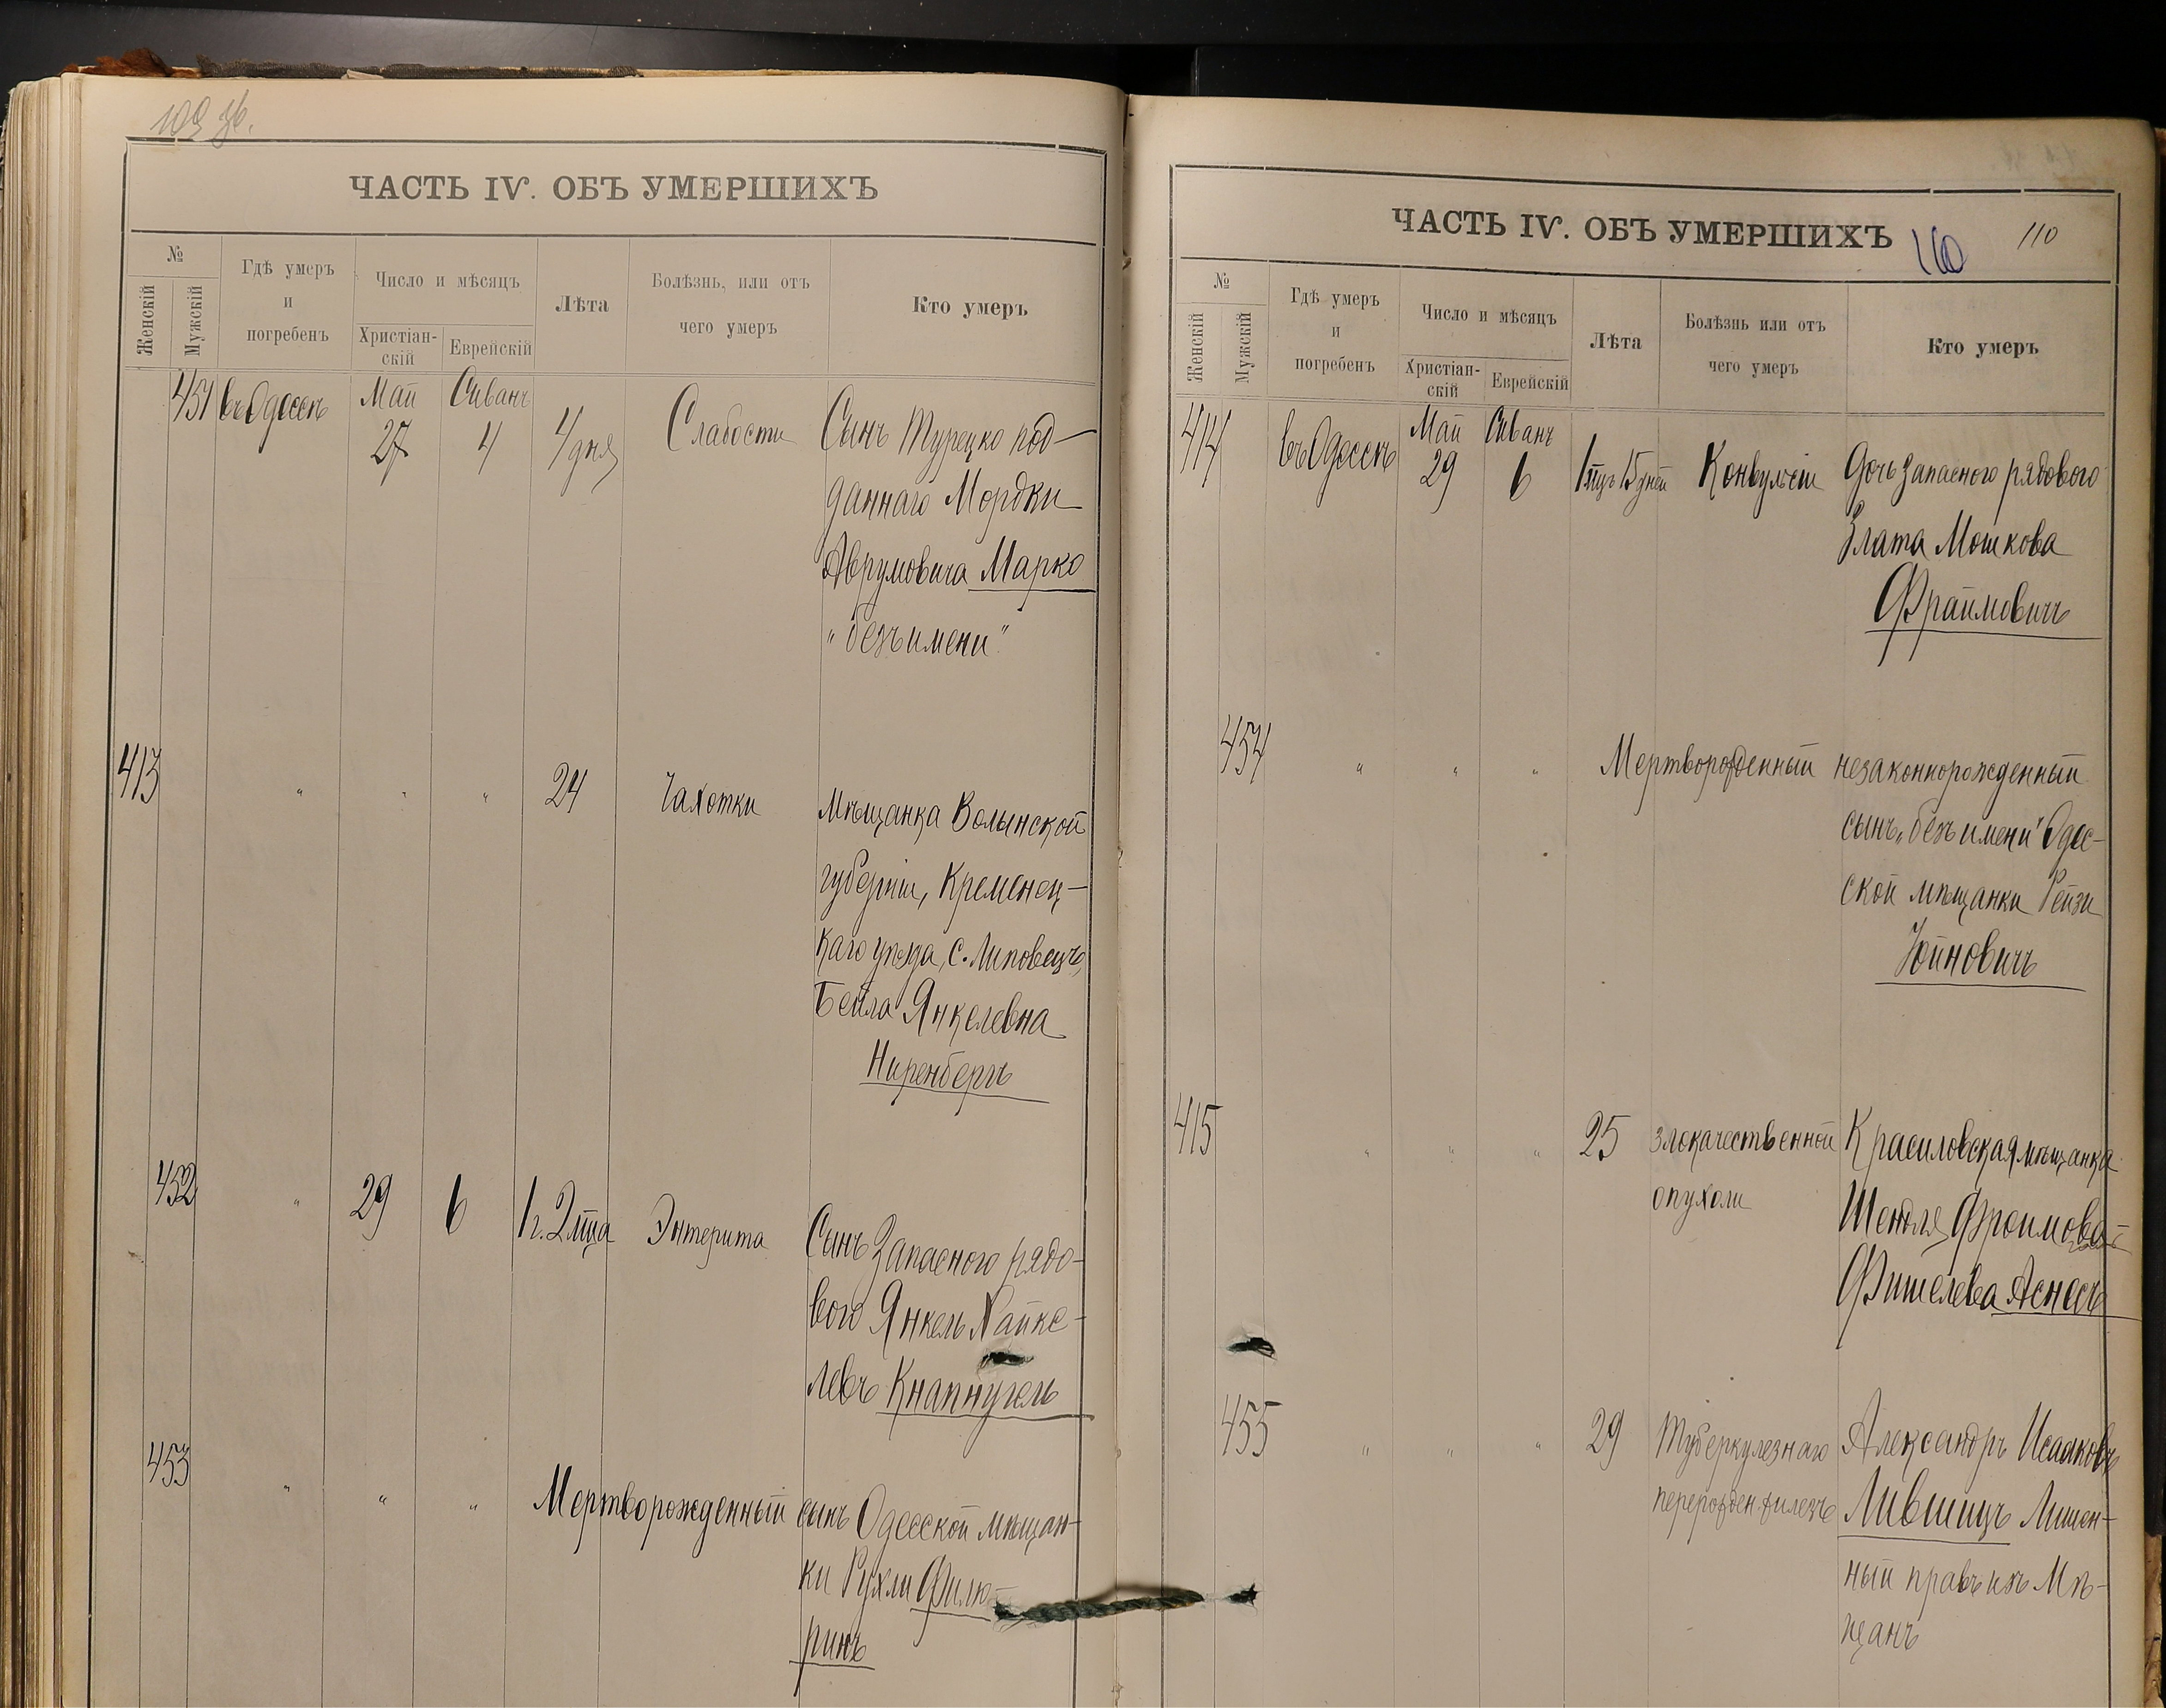 109 зб.
ЧАСТЬ IV. ОБЪ УМЕРШИХЪ
№
Женскій
Мужскій
Гдѣ умеръ
и
погребенъ
Число и мѣсяцъ
Христіан-
скій
Еврейскій
Лѣта
Болѣзнь, или отъ
чего умеръ
Кто умеръ
451 въ Одессѣ Май Сиванъ
27 4 4 дня Слабости Сынъ Турецко под-
даннаго Мордки
Аврумовича Марко
„безъ имени“
413 " " " 24 Чахотки Мѣщанка Волынской
губерніи, Кременец-
каго уѣзда, с. Липовецъ,
Бейла Янкелевна
Ниренбергъ
452 " 29 6 1 г. 2 мца Энтерита Сынъ Запасного рядо-
вого Янкель Хайке-
левъ Кнапнугель
453 " " " Мертворожденный сынъ Одесской мѣщан-
ки Рухли Филю-
ринъ
ЧАСТЬ IV. ОБЪ УМЕРШИХЪ
110
110
№
Женскій
Мужскій
Гдѣ умеръ
и
погребенъ
Число и мѣсяцъ
Христіан-
скій
Еврейскій
Лѣта
Болѣзнь или отъ
чего умеръ
Кто умеръ
414 въ Одессѣ Май Сиванъ
29 6 1 мцъ 15 дней Конвульсіи Дочь запасного рядового
Злата Мошкова
Фраимовичъ
454 " " " Мертворожденный незаконнорожденный
сынъ „безъ имени“ Одес-
ской мѣщанки Рейзи
Юйновичъ
415 " " " 25 злокачественной Красиловская мѣщанка
опухоли
Шендля Фроимова-
Фишелева Аснесъ
455 " " " 29 Туберкулезнаго Александръ Исааковъ
Лившицъ Лишен-
ный правъ изъ Мѣ-
щанъ